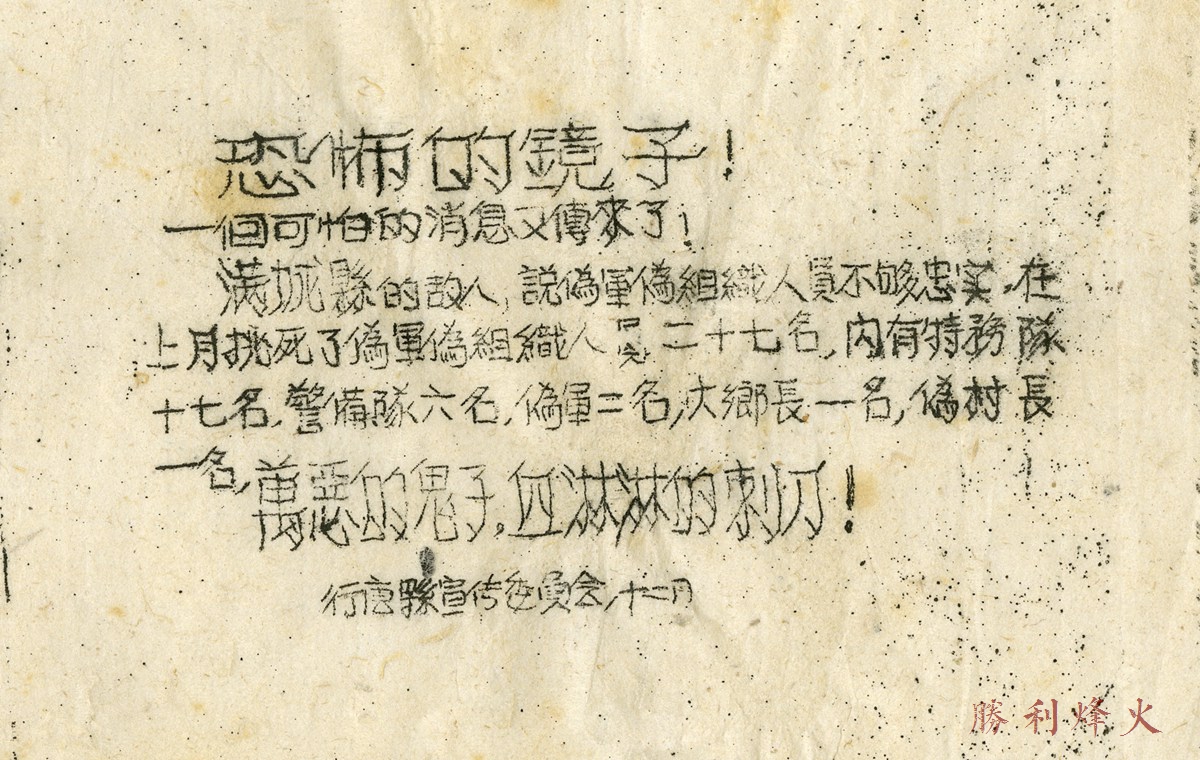 恐怖的鏡子!
一個可怕的消息又傳來了!
滿城縣的敌人,説偽軍偽組織人員不够忠实,在
上月挑死了偽軍偽組織人員二十七名,内有特務隊
十七名,警備隊六名,偽軍二名,大鄉長一名,偽村長
一名,
萬惡的鬼子,血淋淋的刺刀!
行唐縣宣传委員会,十二月
勝利烽火